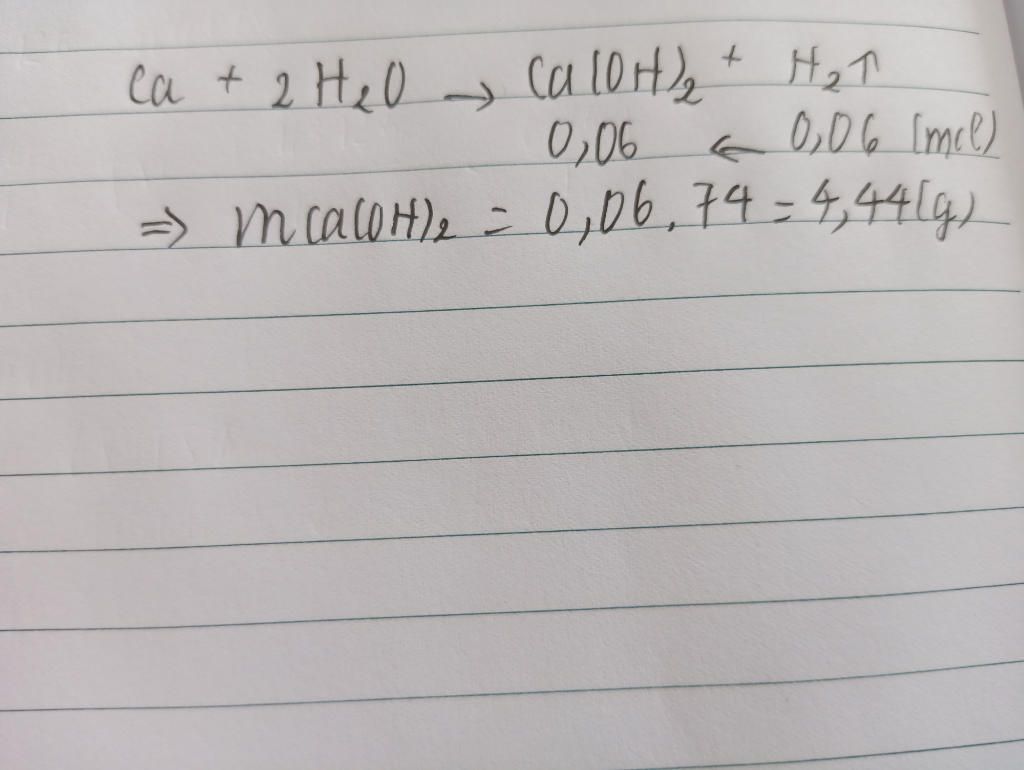 Ca + 2 H₂O → Ca(OH)₂ + H₂↑
0,06 ← 0,06 (mol)
⇒ mCa(OH)₂ = 0,06 . 74 = 4,44(g)